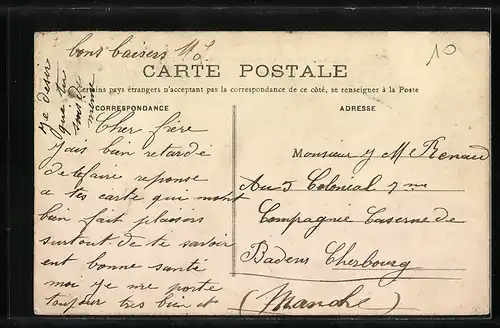 bons baisers M L
10
CARTE POSTALE
Certains pays étrangers n'acceptant pas la correspondance de ce côté, se renseigner à la Poste
CORRESPONDANCE
Cher frère
Jais bien retardé
de te faire reponse
a tes carte qui mont
bien fait plaisirs
surtout de te savoir
ent bonne santé
moi je me porte
toujour tres bien et
je desir
que tu
soit de
meme
ADRESSE
Monsieur J M Renaud
Au 5 Colonial 7 me
Compagnie Caserne de
Badens Cherbourg
(Manche)